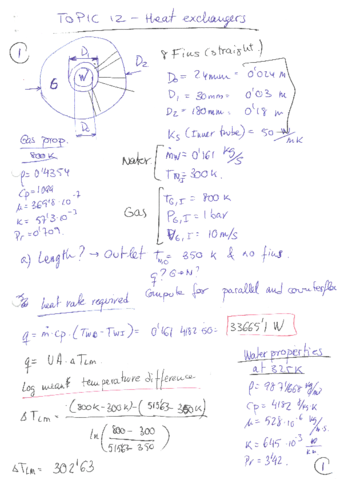 TOPIC 12 - Heat exchangers
1
8 Fins (straight)
D1
D2
G
W
D0 = 24mm = 0'024 m
D1 = 30mm = 0'03 m
D2 = 180mm = 0'18 m
Ks (Inner tube) = 50 W/mK
Gas prop.
800K
ρ = 0'4354
Cp = 1099
K = 57'3·10^-3
Pr = 0'709
Water
ṁw = 0'161 kg/s
= 300K.
Gas
TG,I = 800 K
PG,I = 1 bar
VG,I = 10 m/s
a) Length? → Outlet TWO = 350 K & no fins.
q? G→W?
Compute for parallel and counterflow
heat rate required
q = ṁ·Cp·(TWO - TWI) = 0'161 4182 50 = 33665'1 W
q = UA·ΔTLm
Log mean temperature difference
ΔTLm = (800K-300K)-(515'63-350K)
ln(800-300 / 515'63-350)
ΔTLm = 302'63
Water properties
at 325K
Cp = 4182 J/kg K
μ = 528·10^-6 kg/m·s
K = 645·10^-3
Pr = 3'42
1